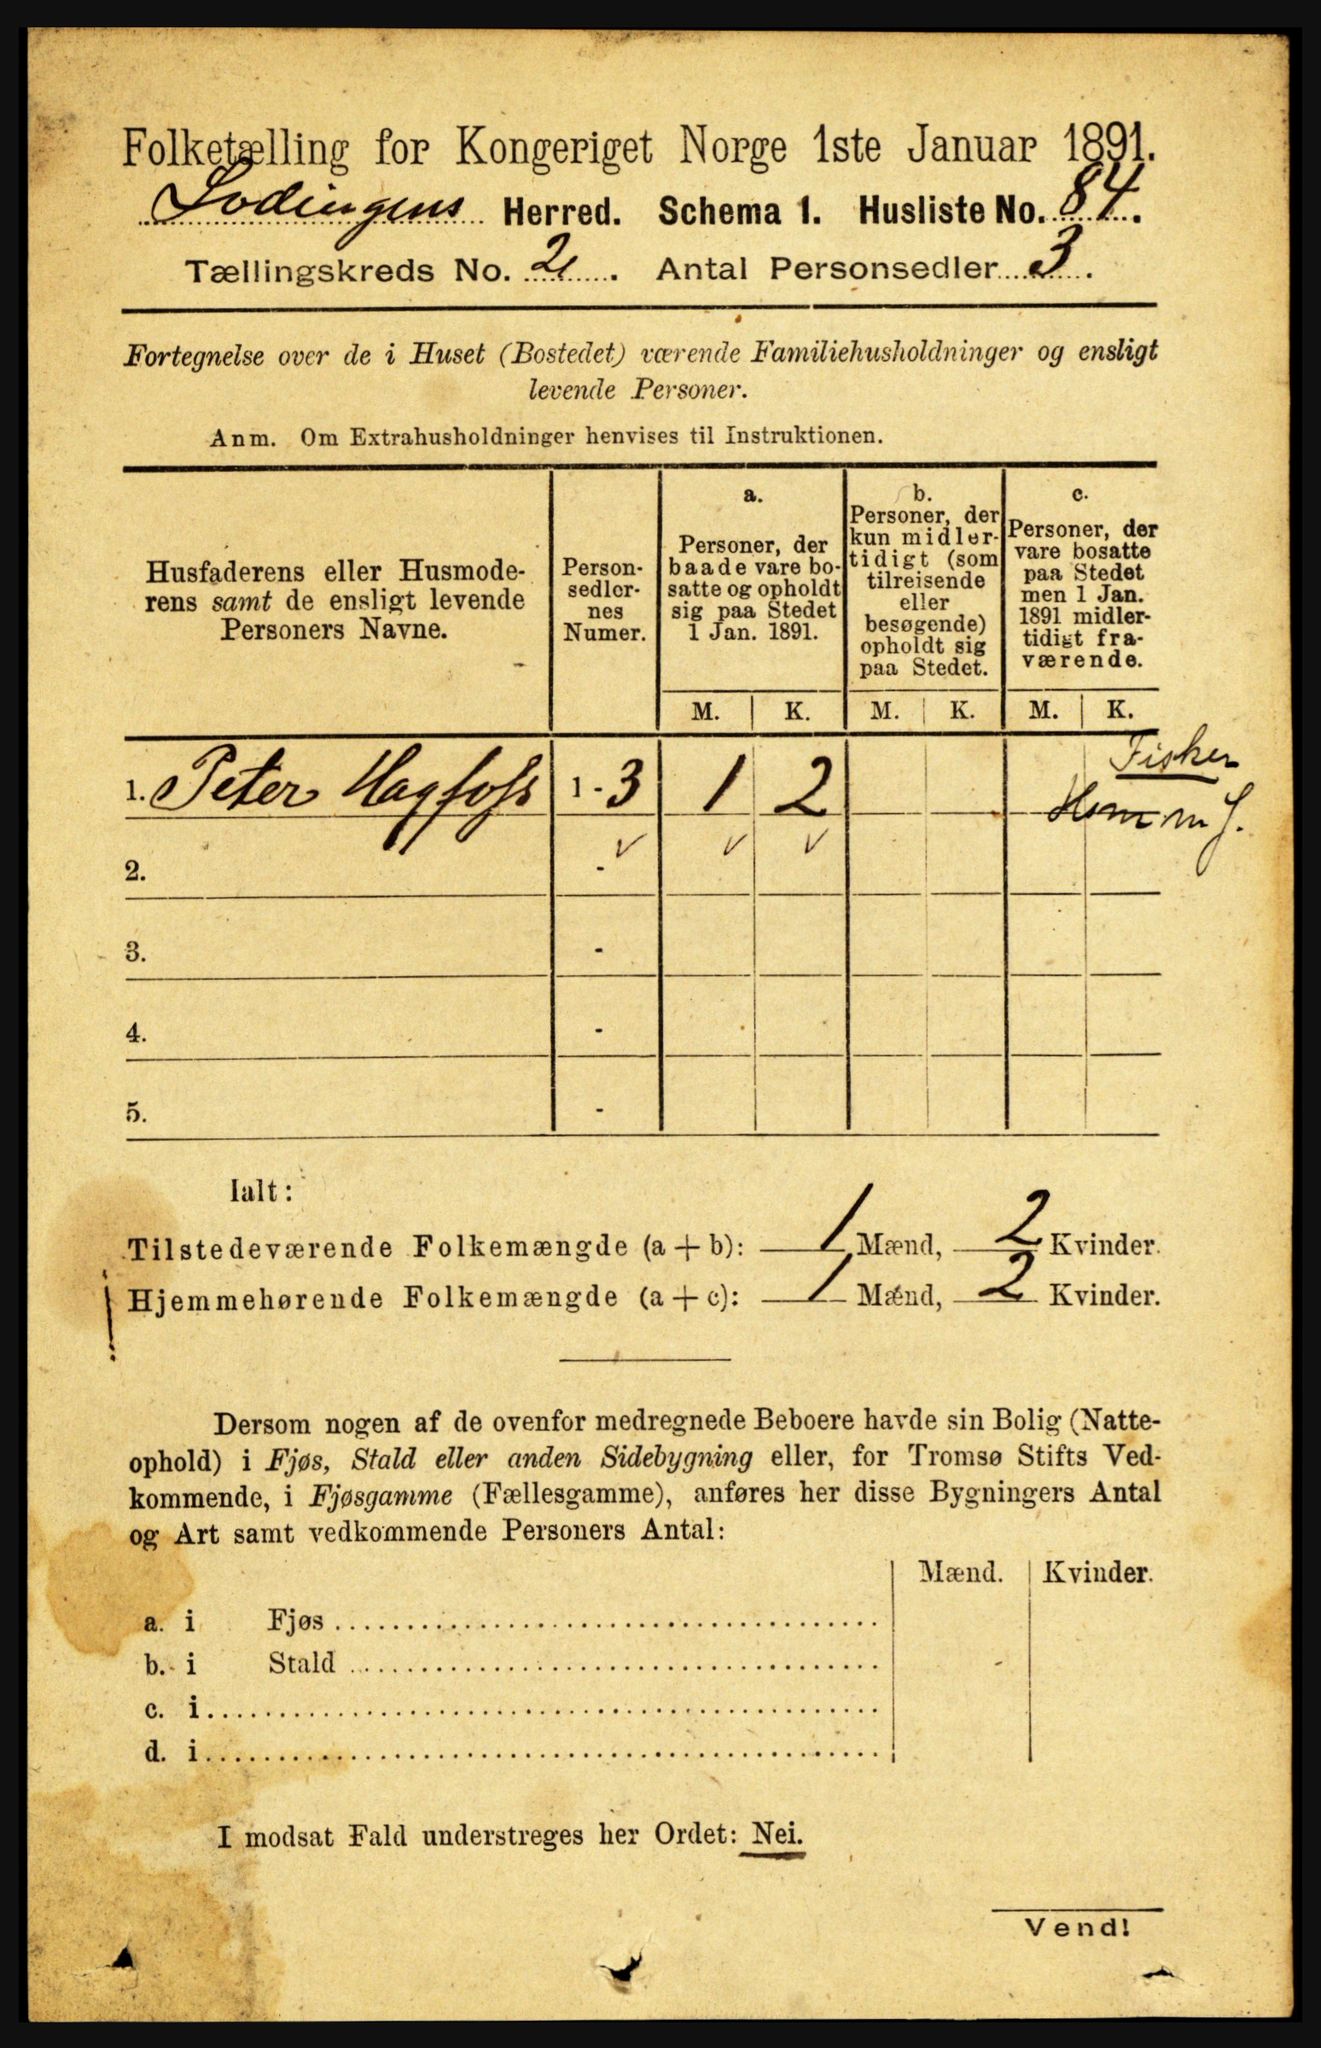 Folketælling for Kongeriget Norge 1ste Januar 1891.
Lødingens Herred. Schema 1. Husliste No. 84.
Tællingskreds No. 2. Antal Personsedler 3.
Fortegnelse over de i Huset (Bostedet) værende Familiehusholdninger og ensligt
levende Personer.
Anm. Om Extrahusholdninger henvises til Instruktionen.
Husfaderens eller Husmode-
rens samt de ensligt levende
Personers Navne.
Person-
sedler-
nes
Numer.
a.
Personer, der
baade vare bo-
satte og opholdt
sig paa Stedet
1 Jan. 1891.
b.
Personer, der
kun midler-
tidigt (som
tilreisende
eller
besøgende)
opholdt sig
paa Stedet.
c.
Personer, der
vare bosatte
paa Stedet
men 1 Jan.
1891 midler-
tidigt fra-
værende.
M. K. M. K. M. K.
Fisker
1. Peter Hagfoss 1 - 3 1 2
m J.
2. -
3. -
4. -
5. -
Ialt:
Tilstedeværende Folkemængde (a + b): 1 Mænd, 2 Kvinder.
Hjemmehørende Folkemængde (a + c): 1 Mænd, 2 Kvinder.
Dersom nogen af de ovenfor medregnede Beboere havde sin Bolig (Natte-
ophold) i Fjøs, Stald eller anden Sidebygning eller, for Tromsø Stifts Ved-
kommende, i Fjøsgamme (Fællesgamme), anføres her disse Bygningers Antal
og Art samt vedkommende Personers Antal:
Mænd. Kvinder.
a. i Fjøs
b. i Stald
c. i
d. i
I modsat Fald understreges her Ordet: Nei.
Vend!